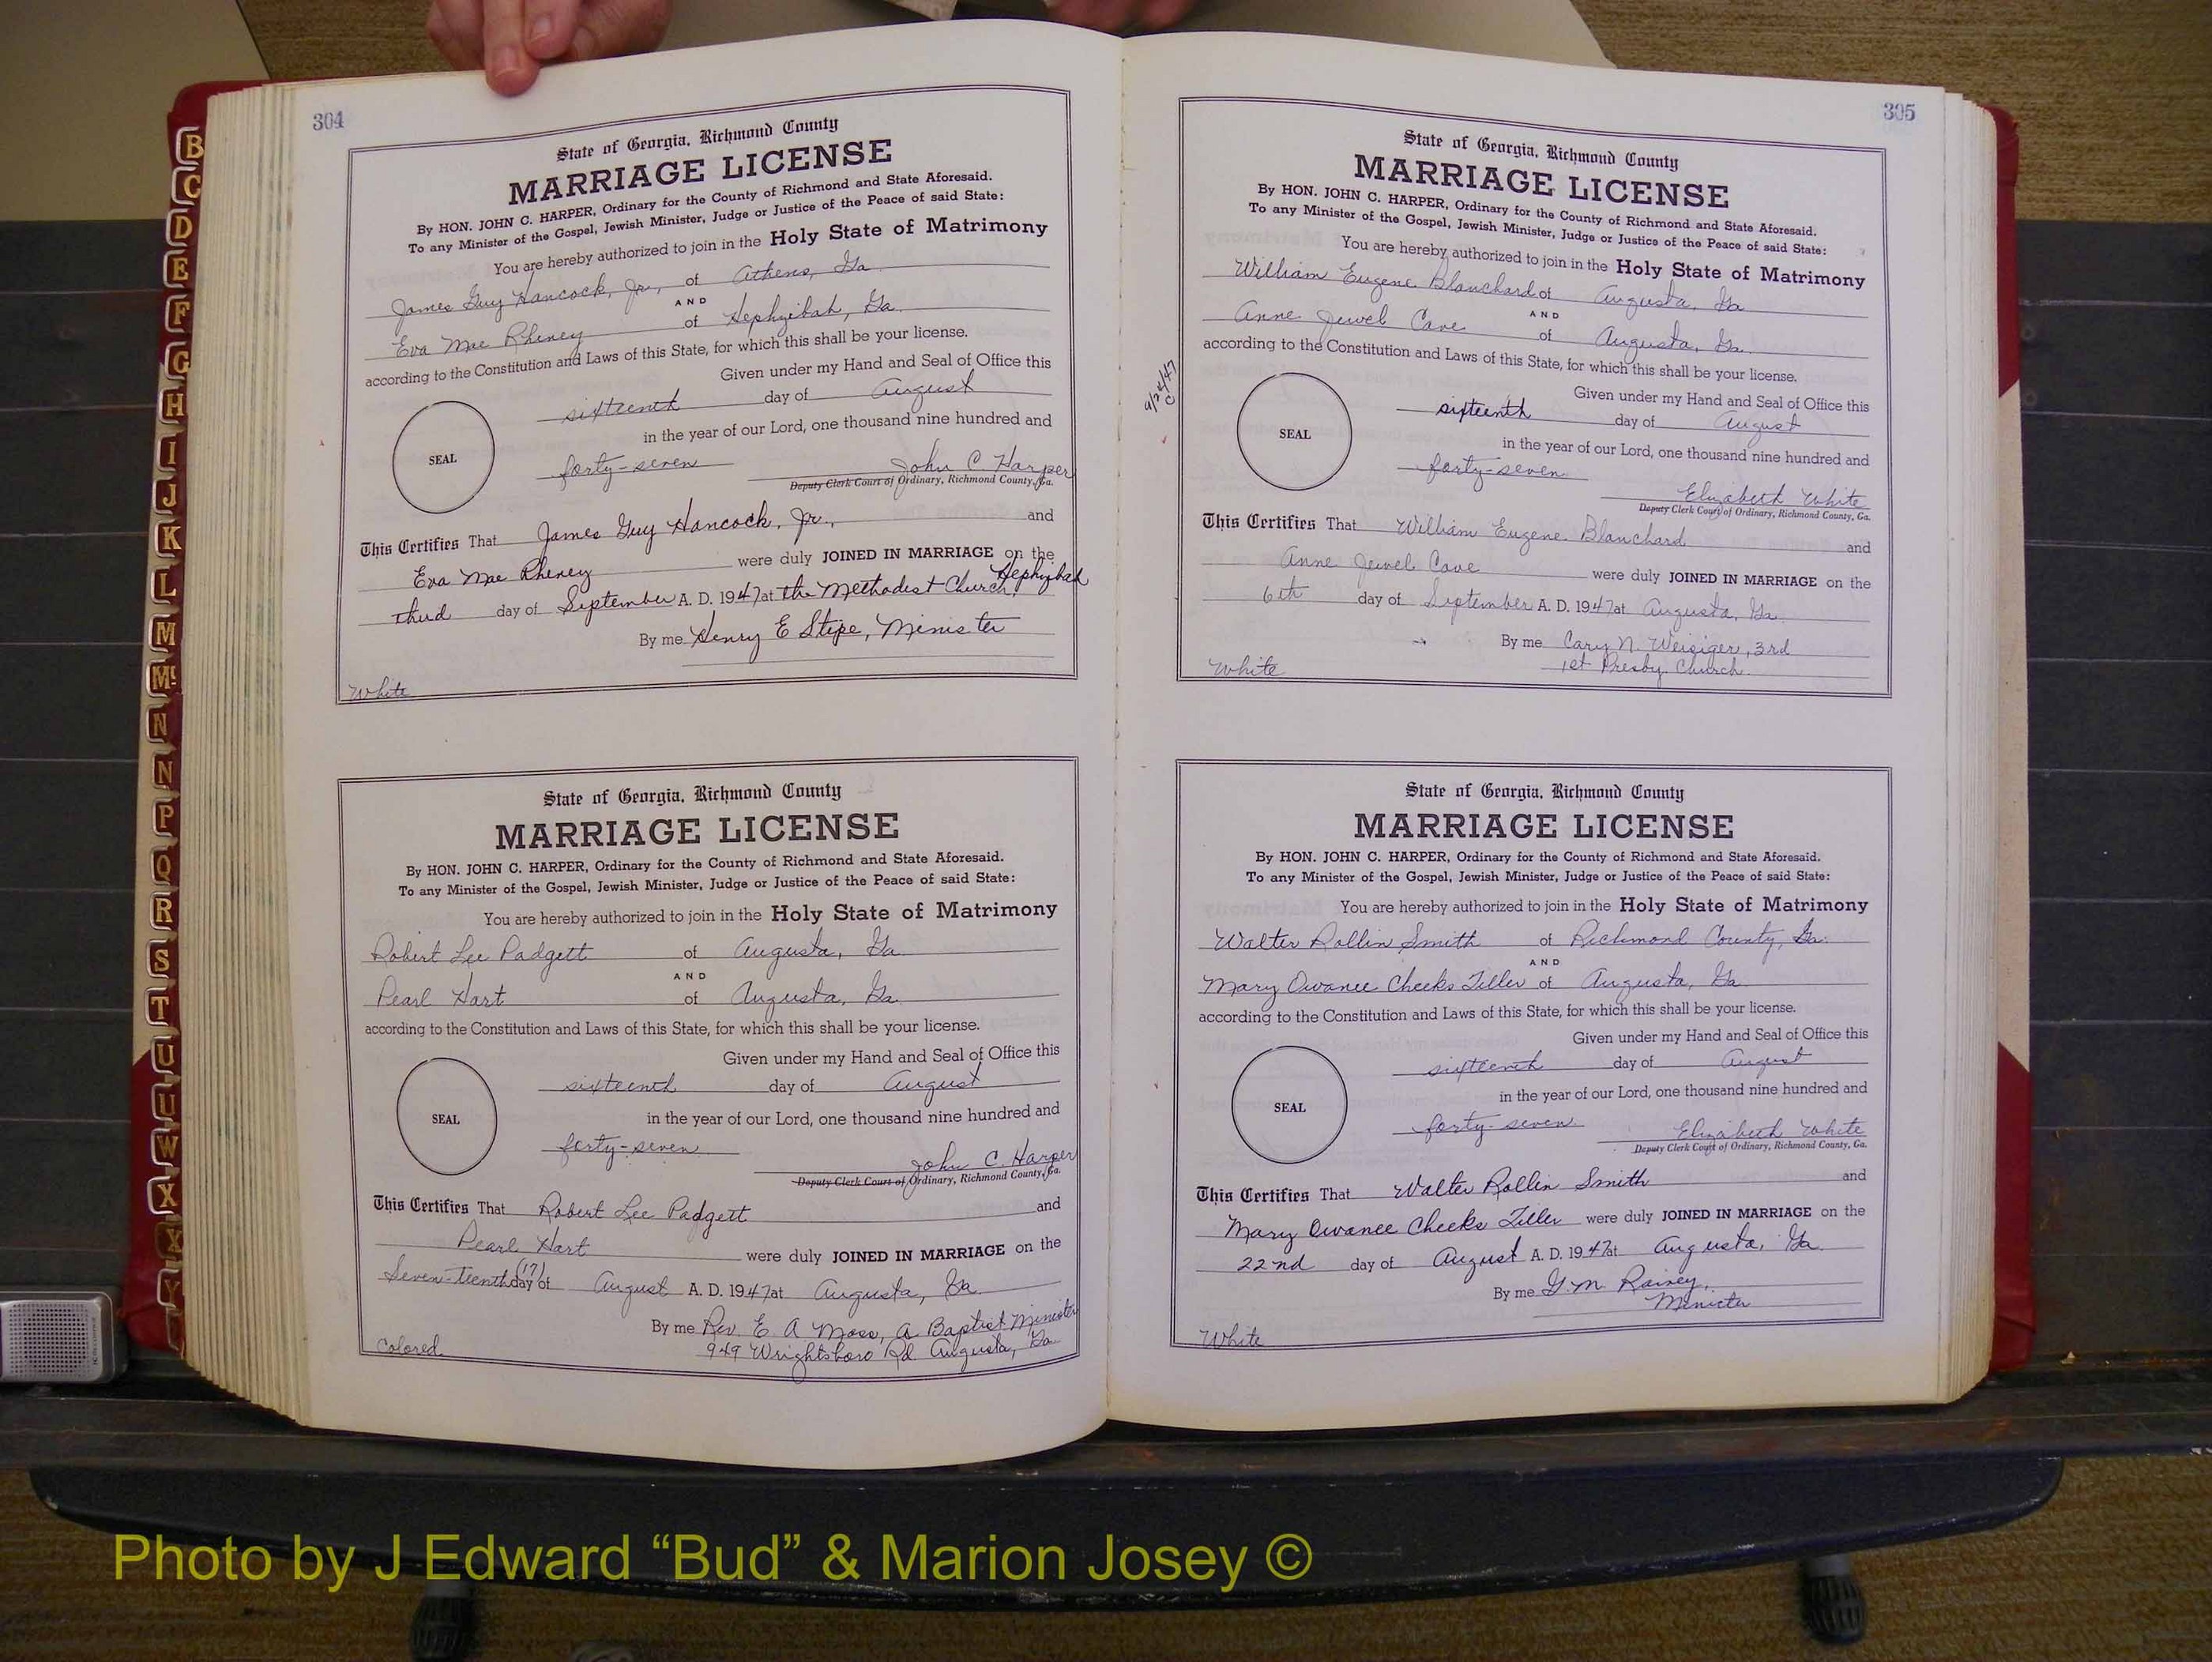 B
C
D
E
F
G
H
I
J
K
L
M
Mc
N
N
P
Q
R
S
T
U
U
W
X
X
Y
304
State of Georgia, Richmond County
MARRIAGE LICENSE
By HON. JOHN C. HARPER, Ordinary for the County of Richmond and State Aforesaid.
To any Minister of the Gospel, Jewish Minister, Judge or Justice of the Peace of said State:
You are hereby authorized to join in the Holy State of Matrimony
James Guy Hancock, Jr., of Athens, Ga.
AND
Eva Mae Rheney of Hephzibah, Ga.
according to the Constitution and Laws of this State, for which this shall be your license.
Given under my Hand and Seal of Office this
sixteenth day of August
in the year of our Lord, one thousand nine hundred and
SEAL
forty-seven John C. Harper
Deputy Clerk Court of Ordinary, Richmond County, Ga.
This Certifies That James Guy Hancock, Jr., and
Eva Mae Rheney were duly JOINED IN MARRIAGE on the
third day of September A. D. 1947 at the Methodist Church, Hephzibah
By me Henry E Stipe, Minister
White
State of Georgia, Richmond County
MARRIAGE LICENSE
By HON. JOHN C. HARPER, Ordinary for the County of Richmond and State Aforesaid.
To any Minister of the Gospel, Jewish Minister, Judge or Justice of the Peace of said State:
You are hereby authorized to join in the Holy State of Matrimony
Robert Lee Padgett of Augusta, Ga.
AND
Pearl Hart of Augusta, Ga.
according to the Constitution and Laws of this State, for which this shall be your license.
Given under my Hand and Seal of Office this
sixteenth day of August
in the year of our Lord, one thousand nine hundred and
SEAL
forty-seven John C. Harper
Deputy Clerk Court of Ordinary, Richmond County, Ga.
This Certifies That Robert Lee Padgett and
Pearl Hart were duly JOINED IN MARRIAGE on the
Seven-teenth (17) day of August A. D. 1947 at Augusta, Ga.
By me Rev. E. A Moss, A Baptist Minister
949 Wrightsboro Rd. Augusta, Ga.
Colored
305
State of Georgia, Richmond County
MARRIAGE LICENSE
By HON. JOHN C. HARPER, Ordinary for the County of Richmond and State Aforesaid.
To any Minister of the Gospel, Jewish Minister, Judge or Justice of the Peace of said State:
You are hereby authorized to join in the Holy State of Matrimony
William Eugene Blanchard of Augusta, Ga
AND
Anne Jewel Cave of Augusta, Ga.
according to the Constitution and Laws of this State, for which this shall be your license.
Given under my Hand and Seal of Office this
sixteenth day of August
in the year of our Lord, one thousand nine hundred and
SEAL
forty-seven Elizabeth White
Deputy Clerk Court of Ordinary, Richmond County, Ga.
This Certifies That William Eugene Blanchard and
Anne Jewel Cave were duly JOINED IN MARRIAGE on the
6th day of September A. D. 1947 at Augusta, Ga.
By me Cary N. Weisiger, 3rd
1st Presby. Church
White
State of Georgia, Richmond County
MARRIAGE LICENSE
By HON. JOHN C. HARPER, Ordinary for the County of Richmond and State Aforesaid.
To any Minister of the Gospel, Jewish Minister, Judge or Justice of the Peace of said State:
You are hereby authorized to join in the Holy State of Matrimony
Walter Rollin Smith of Richmond County, Ga.
AND
Mary Owanee Cheeks Tiller of Augusta, Ga
according to the Constitution and Laws of this State, for which this shall be your license.
Given under my Hand and Seal of Office this
sixteenth day of August
in the year of our Lord, one thousand nine hundred and
SEAL
forty-seven Elizabeth White
Deputy Clerk Court of Ordinary, Richmond County, Ga.
This Certifies That Walter Rollin Smith and
Mary Owanee Cheeks Tiller were duly JOINED IN MARRIAGE on the
22nd day of August A. D. 1947 at Augusta, Ga.
By me G. M. Rainey,
Minister
White
Photo by J Edward “Bud” & Marion Josey ©